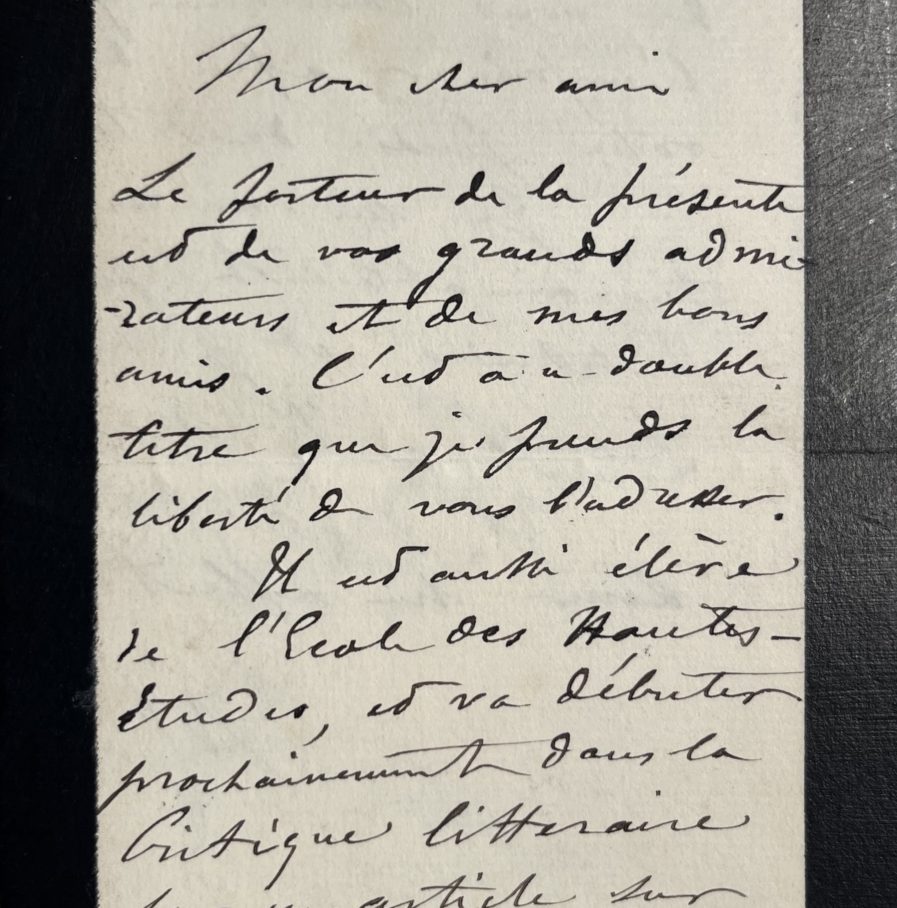 Mon cher ami
Le porteur de la présente
est de vos grands admi-
-rateurs et de mes bons
amis. C'est à ce double
titre que je prends la
liberté de vous l'adresser.
Il est aussi élève
de l'Ecole des Hautes-
Etudes, et va débuter
prochainement dans la
Critique litteraire
article sur